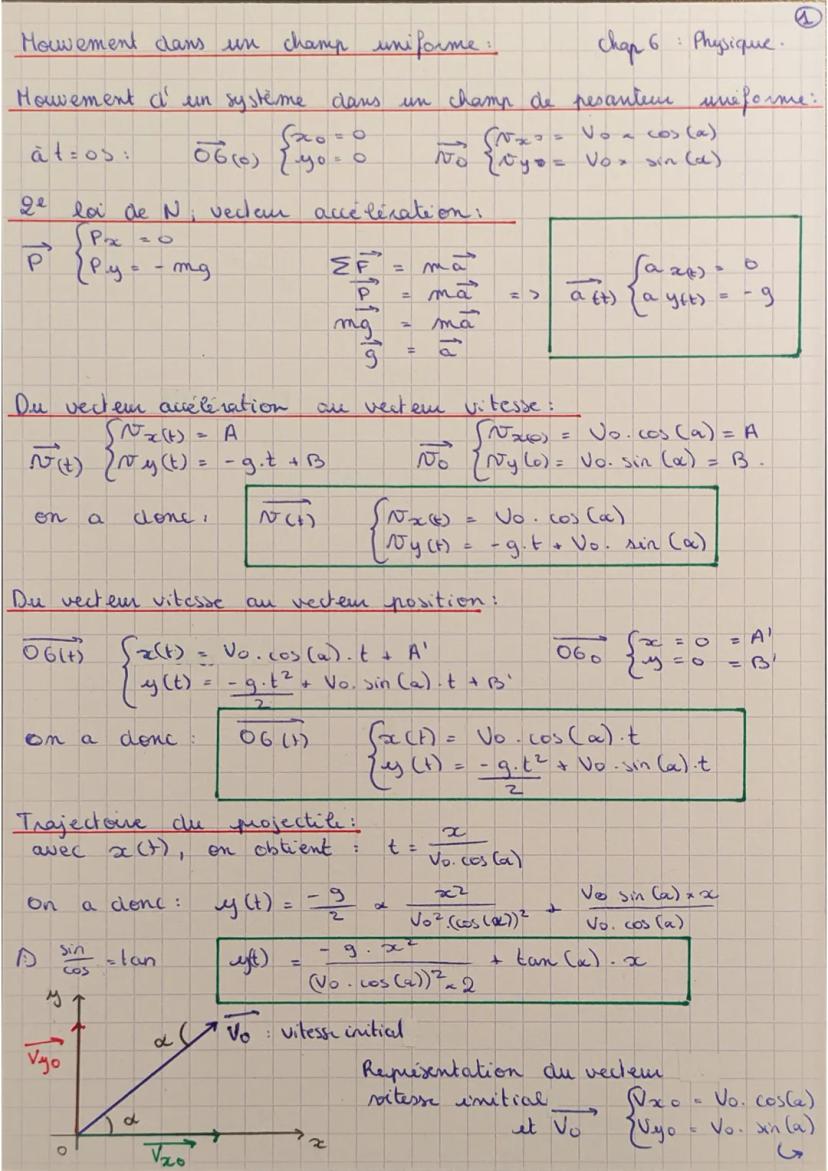 1
Mouvement dans un champ uniforme : chap 6 : Physique.
Mouvement d'un système dans un champ de pesanteur uniforme :
à t = 0s : OG(0) { x0 = 0 v0 { vx0 = V0 × cos(α)
y0 = 0 vy0 = V0 × sin(α)
2e loi de N, vecteur accélération :
P { Px = 0
Py = - mg
ΣF = ma
P = ma => a(t) { a x(t) = 0
a y(t) = - g
mg = ma
g = a
Du vecteur accélération au vecteur vitesse :
v(t) { vx(t) = A v0 { vx(0) = V0 . cos(α) = A
vy(t) = -g.t + B vy(0) = V0 . sin(α) = B.
on a donc : v(t) { vx(t) = V0 . cos(α)
vy(t) = -g.t + V0 . sin(α)
Du vecteur vitesse au vecteur position :
OG(t) { x(t) = V0 . cos(α) . t + A' OG0 { x = 0 = A'
y(t) = -g.t²/2 + V0 . sin(α) . t + B' y = 0 = B'
on a donc : OG(t) { x(t) = V0 . cos(α) . t
y(t) = -g.t²/2 + V0 . sin(α) . t
Trajectoire du projectile :
avec x(t), on obtient : t = x / V0 . cos(α)
On a donc : y(t) = -g/2 × x² / V0² . (cos(α))² + V0 sin(α) × x / V0 . cos(α)
sin/cos = tan y(t) = -g . x² / (V0 . cos(α))² × 2 + tan(α) . x
y
α V0 : vitesse initial
Vy0
α
0 Vx0 x
Représentation du vecteur
vitesse initial
et V0 { Vx0 = V0 . cos(α)
Vy0 = V0 . sin(α)